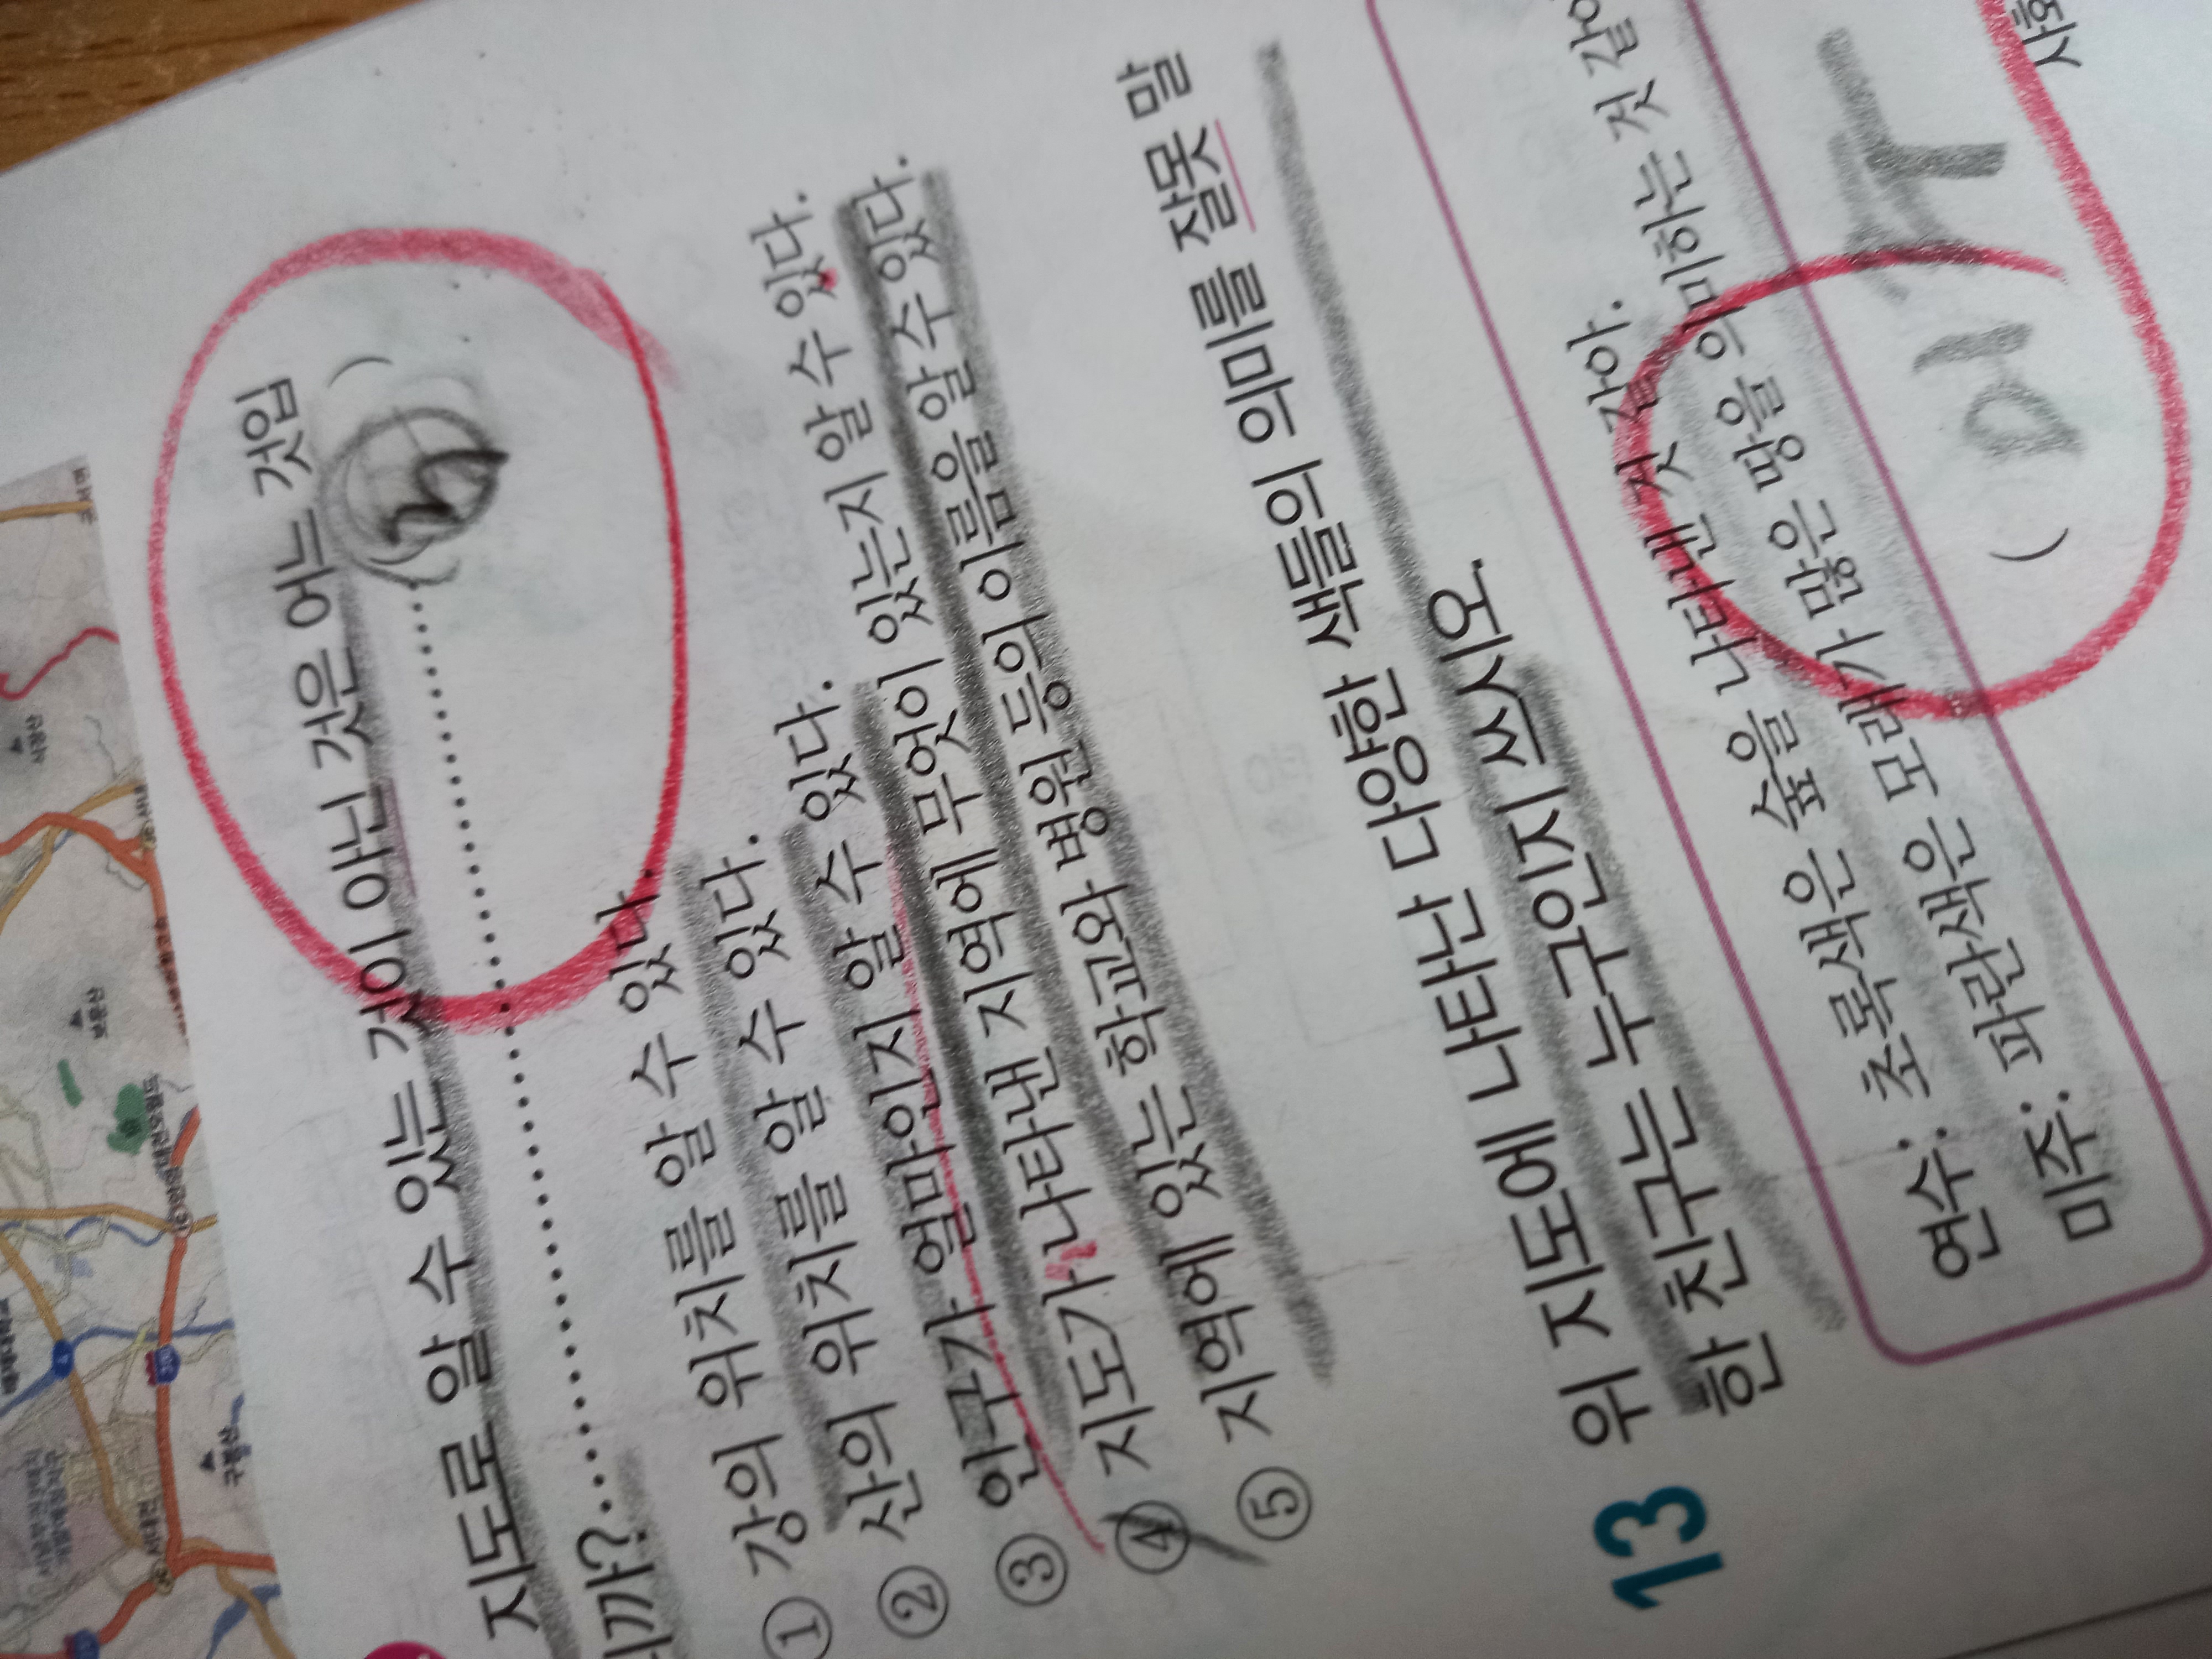 지도로 알 수 있는 것이 아닌 것은 어느 것입
니까? ( )
① 강의 위치를 알 수 있다.
② 산의 위치를 알 수 있다.
③ 인구가 얼마인지 알 수 있다.
④ 지도가 나타낸 지역에 무엇이 있는지 알 수 있다.
⑤ 지역에 있는 학교와 병원 등의 이름을 알 수 있다.
13 위 지도에 나타난 다양한 색들의 의미를 잘못 말
한 친구는 누구인지 쓰시오.
연수: 초록색은 숲을 나타낸 것 같아.
미주: 파란색은 모래가 많은 땅을 의미하는 것 같아
( 미주
구봉산
보문산
식장산